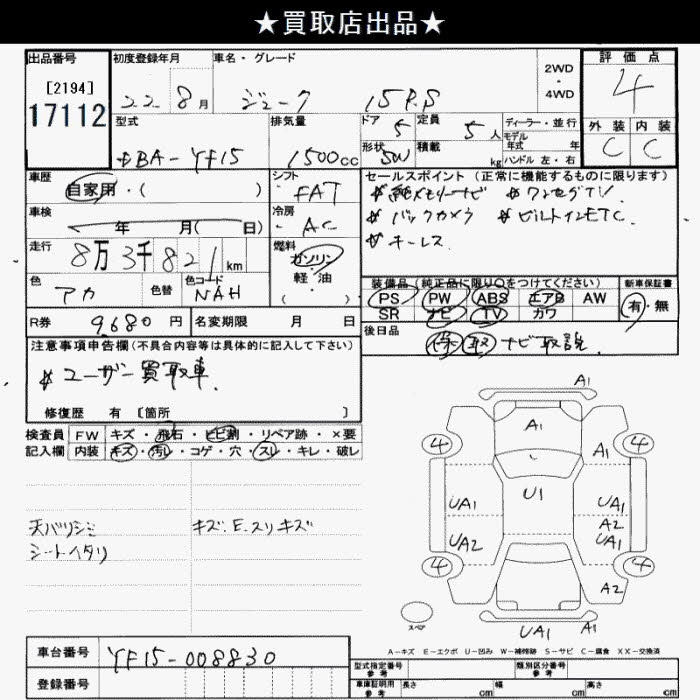 ★買取店出品★
出品番号
[2194]
17112
初度登録年月
22 8月
車名・グレード
ジューク 15RS
2WD
・
4WD
評価点
4
型式
DBA-YF15
排気量
1500cc
ドア 5
定員 5人
ディーラー・並行
モデル年式 年
形状 SW
積載 kg
ハンドル 左・右
外装 内装
C C
車歴
自家用・( )
シフト
FAT
セールスポイント (正常に機能するものに限ります)
# 純メモリーナビ # ワンセグTV
# バックカメラ # ビルトインETC
# キーレス
車検
年 月( 日)
冷房
AC
走行
8万3千821km
燃料
ガソリン
軽・油
( )
色
アカ
色替
色コード
NAH
装備品(純正品に限り○をつけてください)
新車保証書
PS PW ABS エアB AW
SR ナビ TV カワ
有・無
R券
9680円
名変期限 月 日
後日品
保 取 ナビ取説
注意事項申告欄(不具合内容等は具体的に記入して下さい)
# ユーザー買取車
修復歴 有 [箇所 ]
検査員 FW キズ・飛石・ヒビ割・リペア跡・×要
記入欄 内装 キズ・汚レ・コゲ・穴・スレ・キレ・破レ
天バリシミ
シートヘタリ
キズ.E.スリキズ
A1
A1
4
4
A1
U1
UA1
UA1
A2
UA2
UA1
4
4
A2
スペア
UA1
A1
A-キズ E-エクボ U-凹み W-補修跡 S-サビ C-腐食 XX-交換済
車台番号
YF15-008830
登録番号
型式指定番号
参考
類別区分番号
参考
車庫証明用
参考
長さ cm
幅 cm
高さ cm